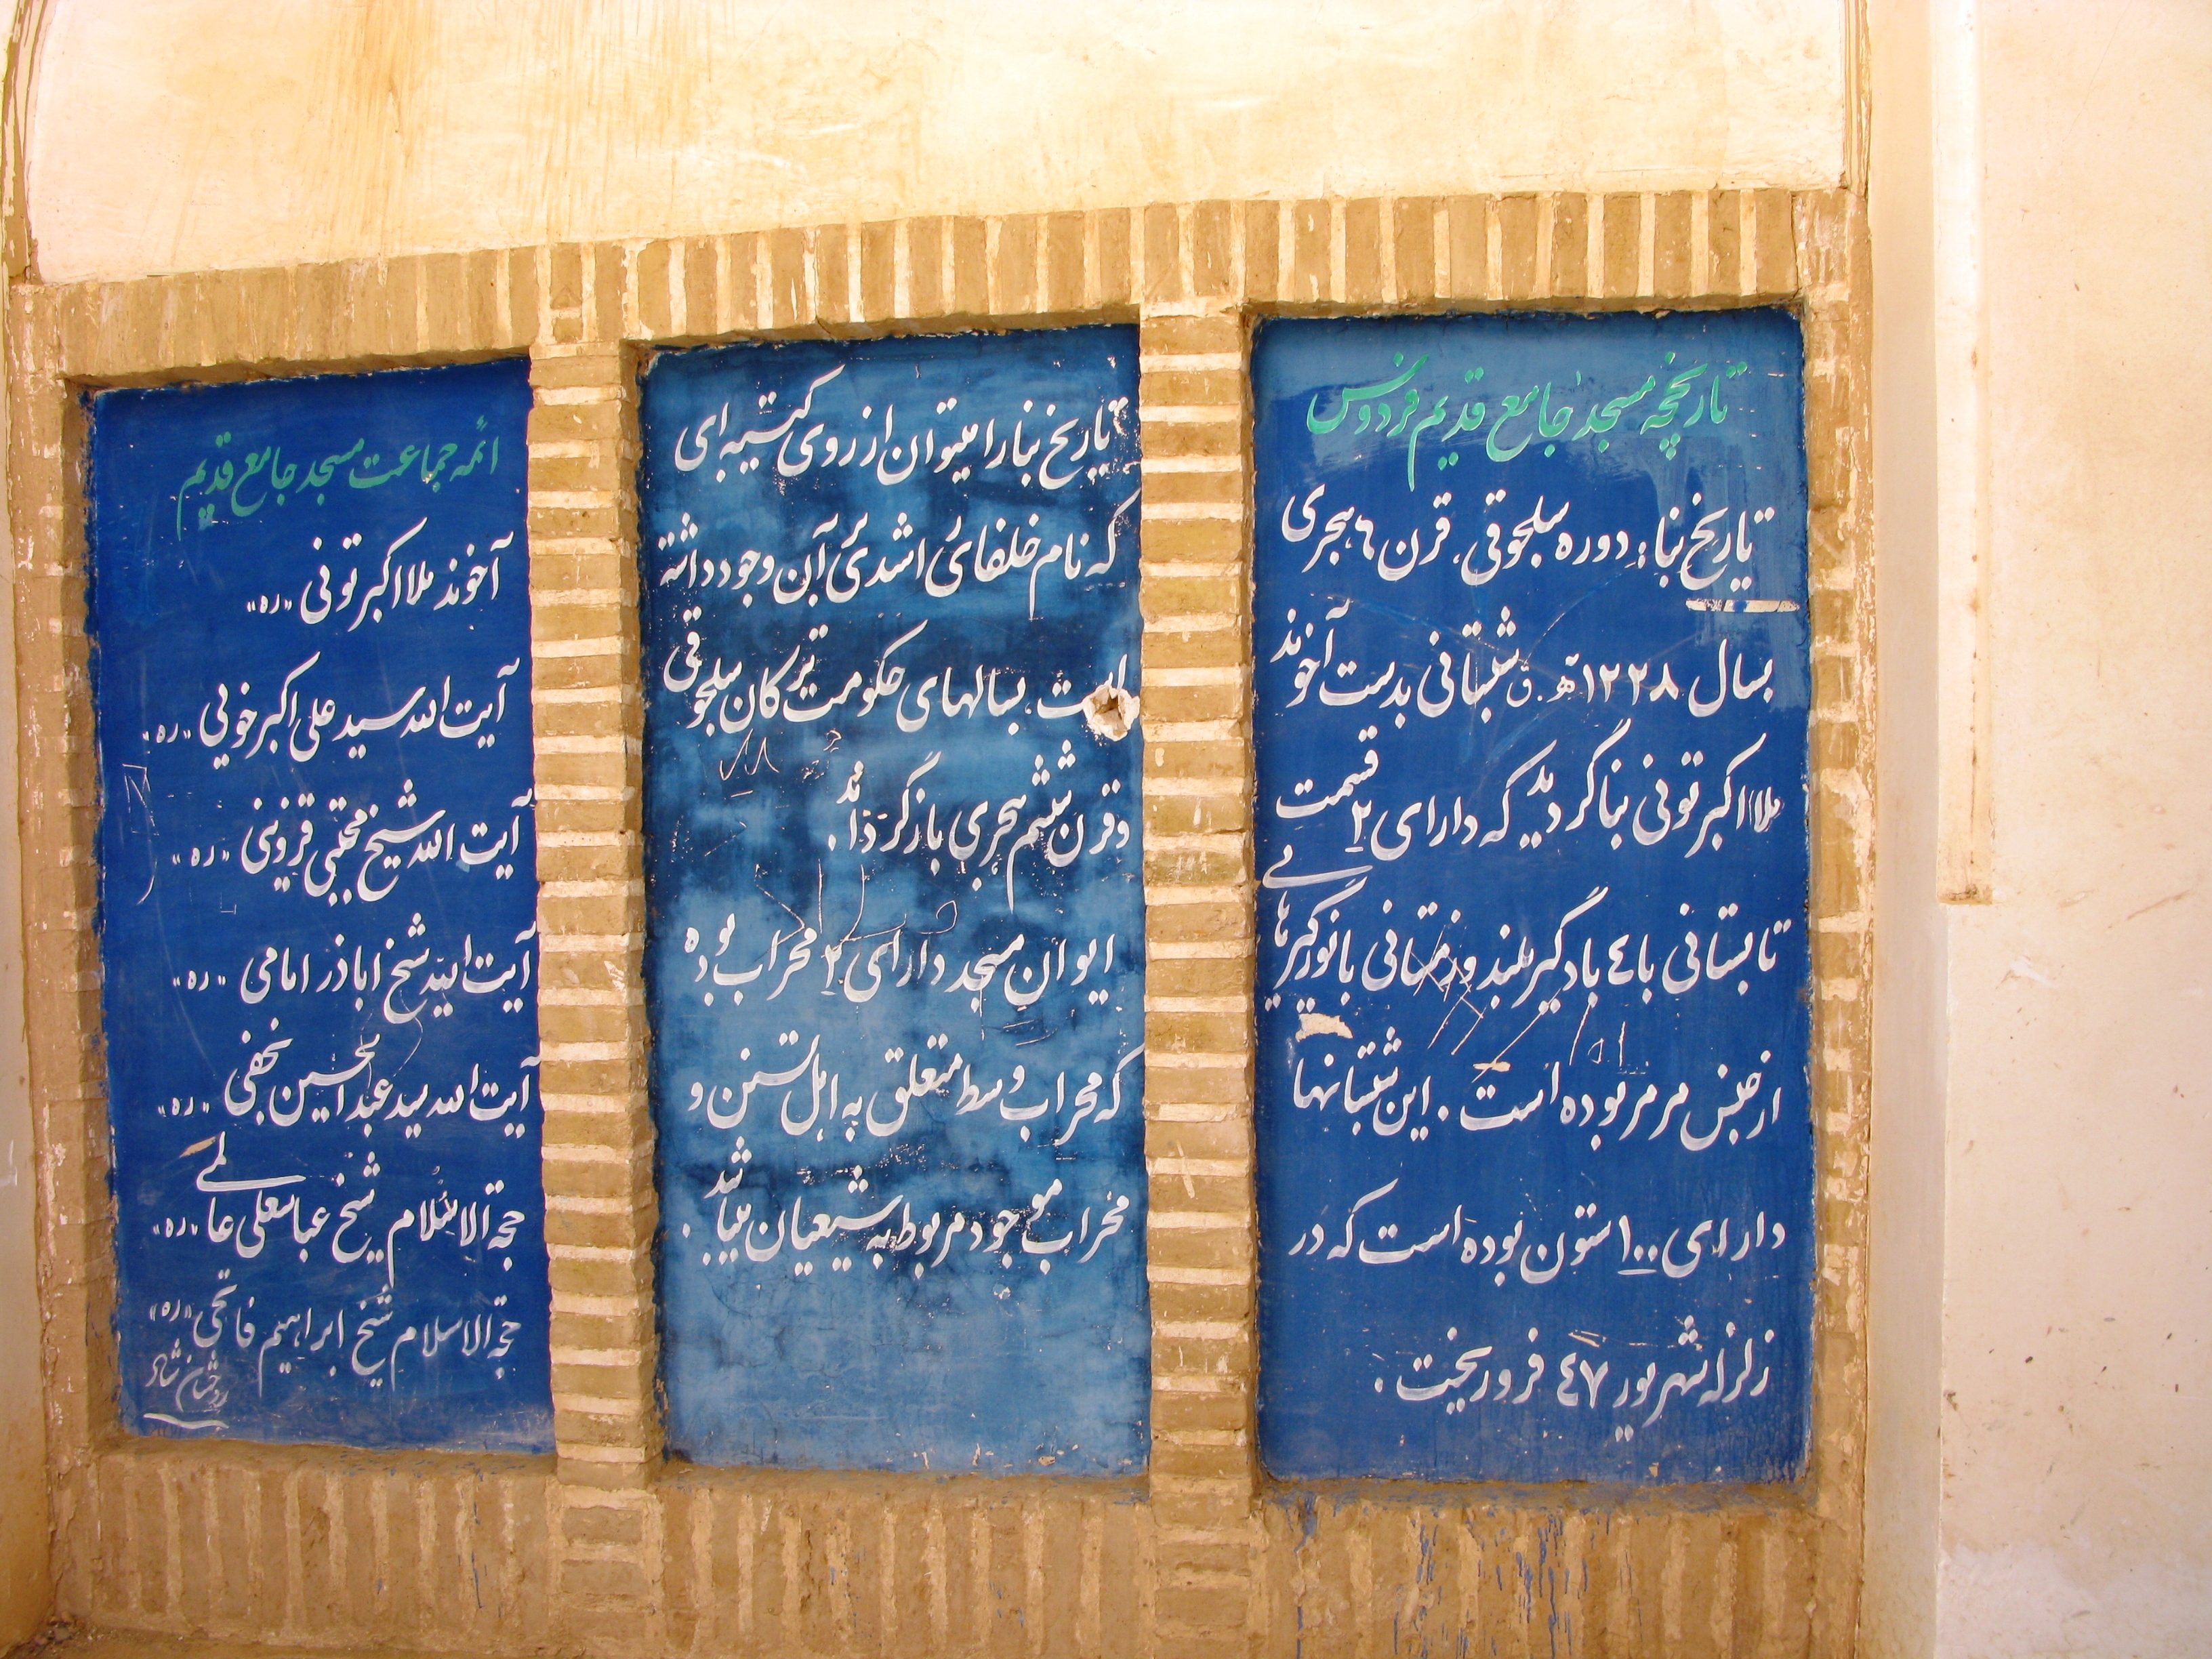 تاریخچه مسجد جامع قدیم فردوس
تاریخ بنا: دوره سلجوقی، قرن ٦ هجری
بسال ۱۲۲۸ ه‍.ق شبستانی بدست آخوند
ملا اکبر تونی بنا گردید که دارای ۲ قسمت
تابستانی با ٤ بادگیر بلند و زمستانی با نورگیرهایی
از جنس مرمر بوده است. این شبستانها
دارای ۱۰۰ ستون بوده است که در
زلزله شهریور ٤۷ فرو ریخت.
تاریخ بنا را میتوان از روی کتیبه ای
که نام خلفای راشدی بر آن وجود داشته
است، بسالهای حکومت ترکان سلجوقی
و قرن ششم هجری بازگرداند.
ایوان مسجد دارای ۲ محراب بوده
که محراب وسط متعلق به اهل تسنن و
محراب موجود مربوط به شیعیان میباشد.
ائمه جماعت مسجد جامع قدیم
آخوند ملا اکبر تونی «ره»
آیت الله سید علی اکبر خویی «ره»
آیت الله شیخ مجتبی قزوینی «ره»
آیت الله شیخ اباذر امامی «ره»
آیت الله سید عبدالحسین نجفی «ره»
حجة الاسلام شیخ عباسعلی عالمی «ره»
حجة الاسلام شیخ ابراهیم فاتحی «ره»
روحشان شاد